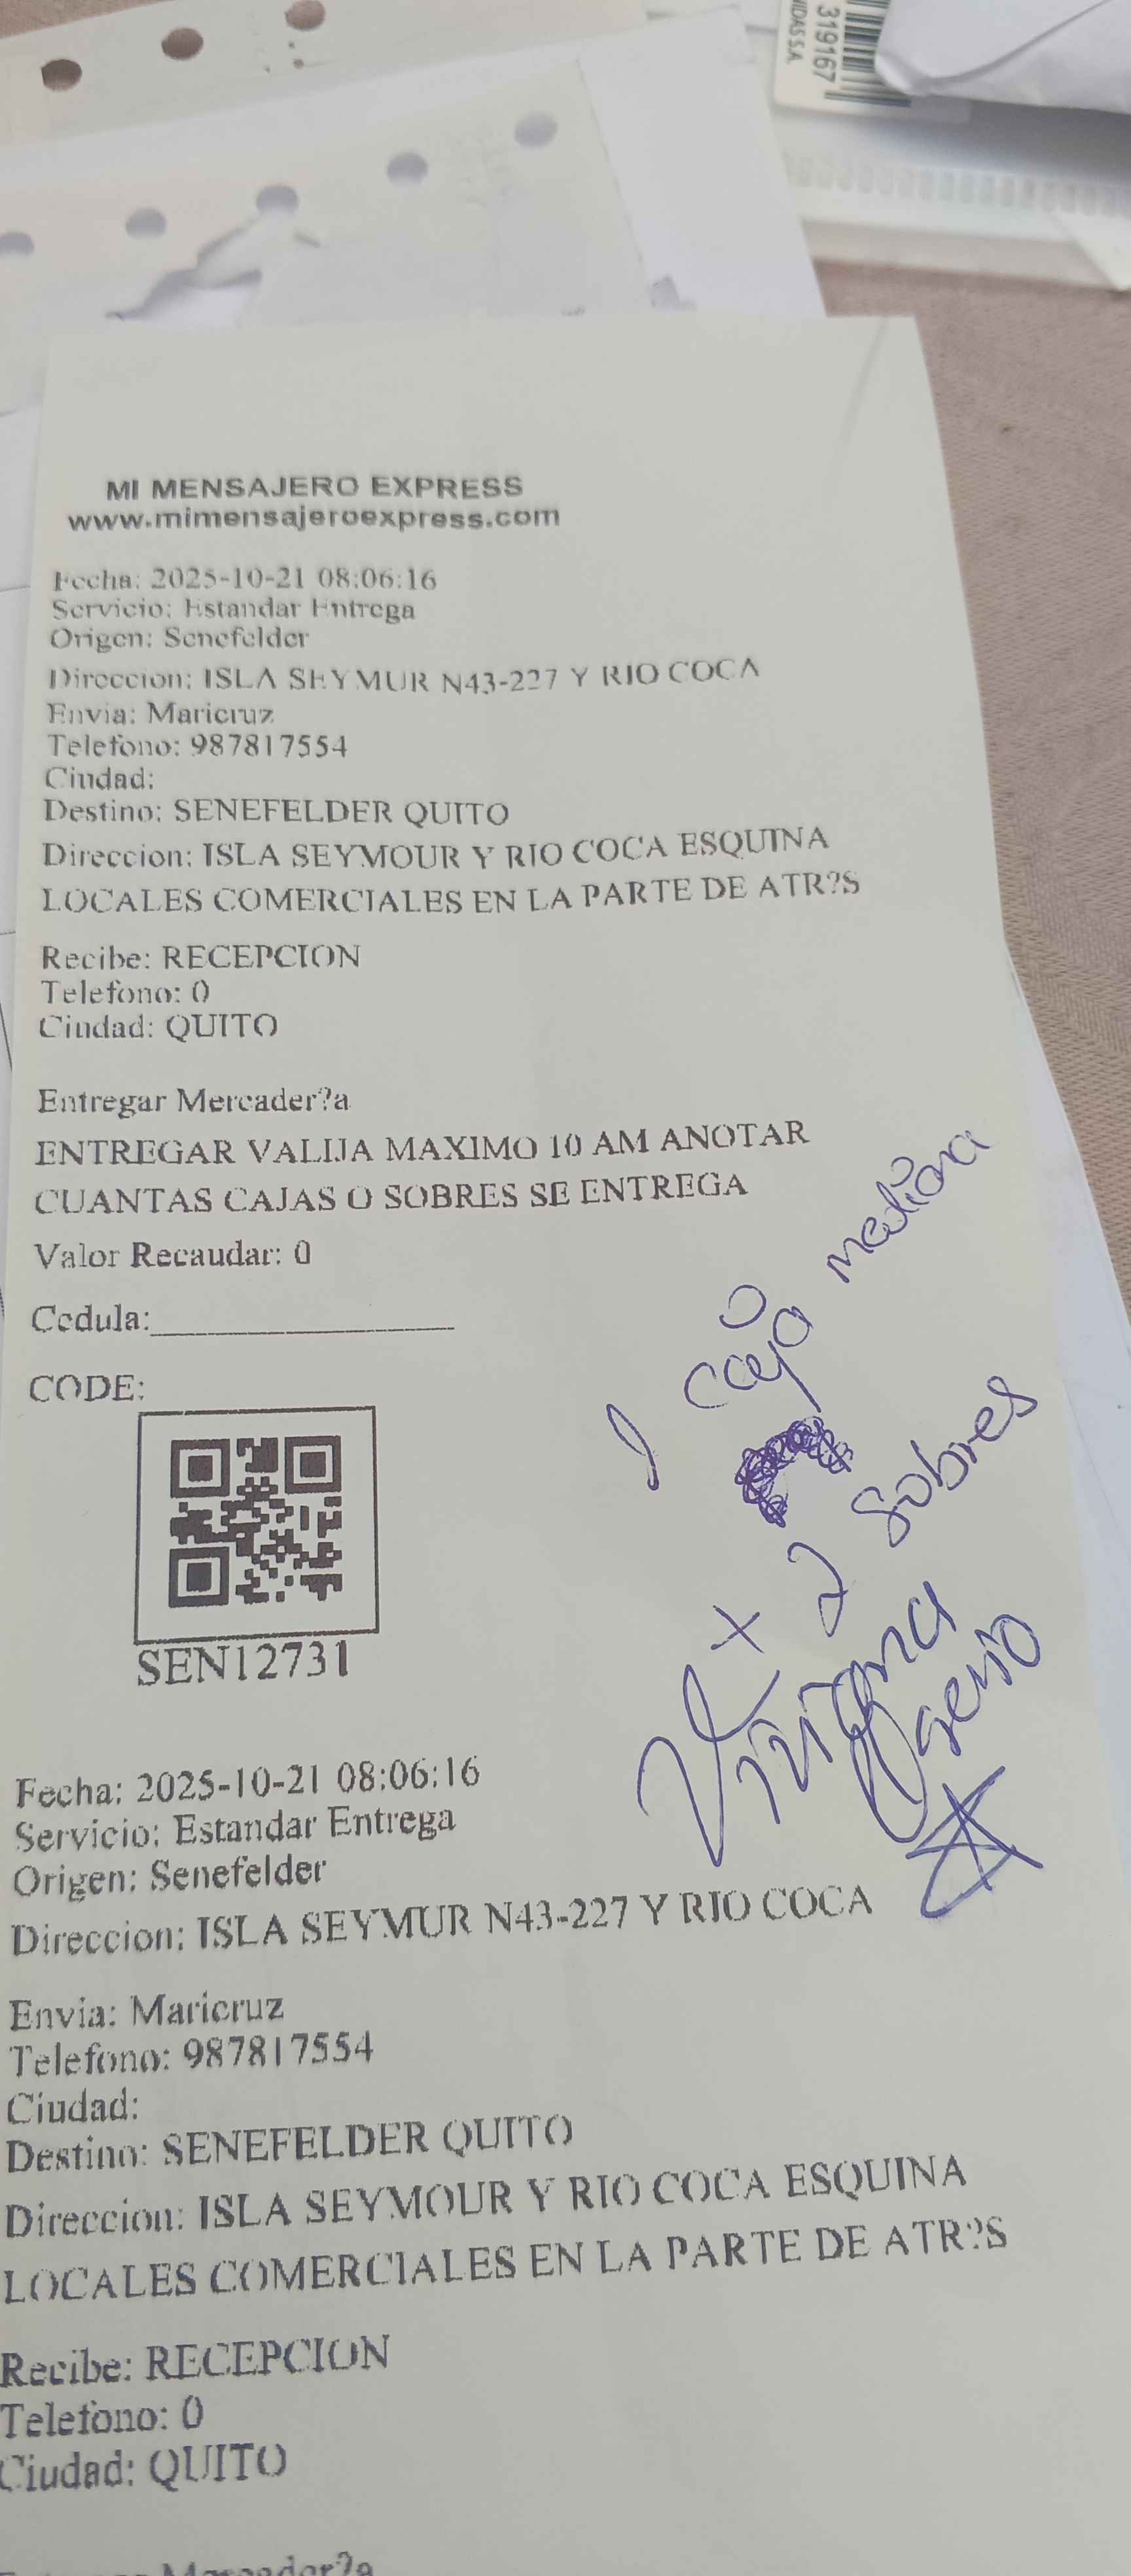 319167
IDAS S.A.
MI MENSAJERO EXPRESS
www.mimensajeroexpress.com
Fecha: 2025-10-21 08:06:16
Servicio: Estandar Entrega
Origen: Senefelder
Direccion: ISLA SEYMUR N43-227 Y RIO COCA
Envia: Maricruz
Telefono: 987817554
Ciudad:
Destino: SENEFELDER QUITO
Direccion: ISLA SEYMOUR Y RIO COCA ESQUINA
LOCALES COMERCIALES EN LA PARTE DE ATR?S
Recibe: RECEPCION
Telefono: 0
Ciudad: QUITO
Entregar Mercader?a
ENTREGAR VALIJA MAXIMO 10 AM ANOTAR
CUANTAS CAJAS O SOBRES SE ENTREGA
Valor Recaudar: 0
Cedula:
CODE:
SEN12731
1 caja mediana
+ 2 sobres
Viviana
Fecha: 2025-10-21 08:06:16
Servicio: Estandar Entrega
Origen: Senefelder
Direccion: ISLA SEYMUR N43-227 Y RIO COCA
Envia: Maricruz
Telefono: 987817554
Ciudad:
Destino: SENEFELDER QUITO
Direccion: ISLA SEYMOUR Y RIO COCA ESQUINA
LOCALES COMERCIALES EN LA PARTE DE ATR?S
Recibe: RECEPCION
Telefono: 0
Ciudad: QUITO
Entregar Mercader?a